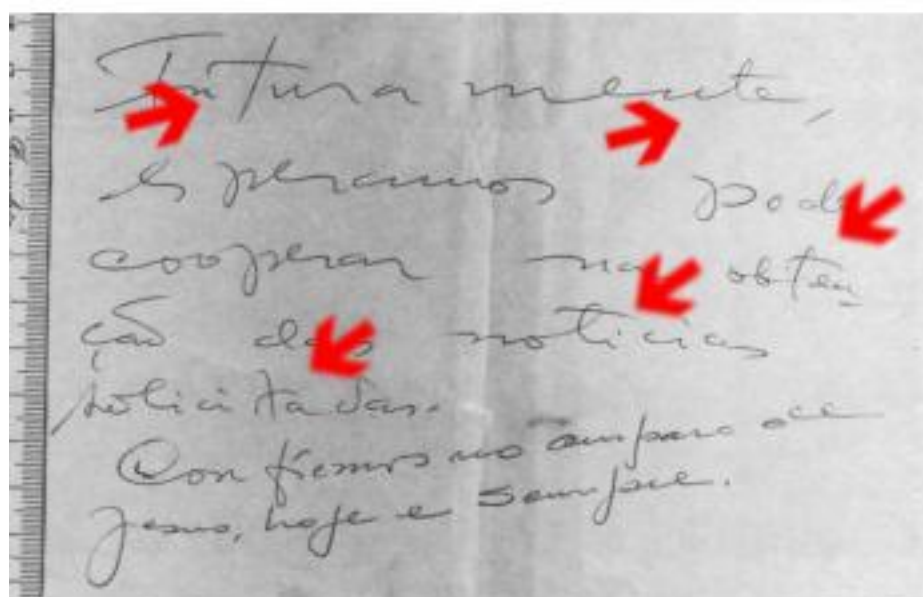 Futura mente,
esperamos pode
cooperar na obten
ção das noticias
solicitadas.
Confiemos no amparo de
Jesus, hoje e sempre.